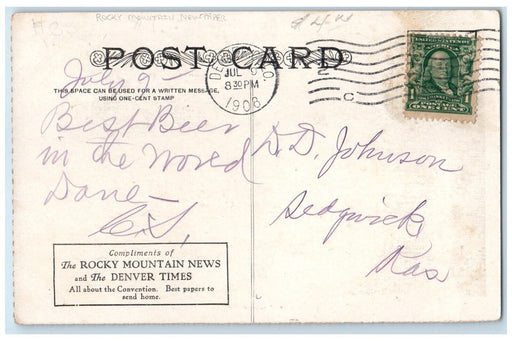 ROCKY MOUNTAIN, NEWSPAPER
POST CARD
THIS SPACE CAN BE USED FOR A WRITTEN MESSAGE,
USING ONE-CENT STAMP
JUL
8 30 PM
1908
July 9-
Best Beer
in the World
Dane-
C.S,
D.D. Johnson
Sedgwick
Kas
Compliments of
The ROCKY MOUNTAIN NEWS
and The DENVER TIMES
All about the Convention. Best papers to
send home.